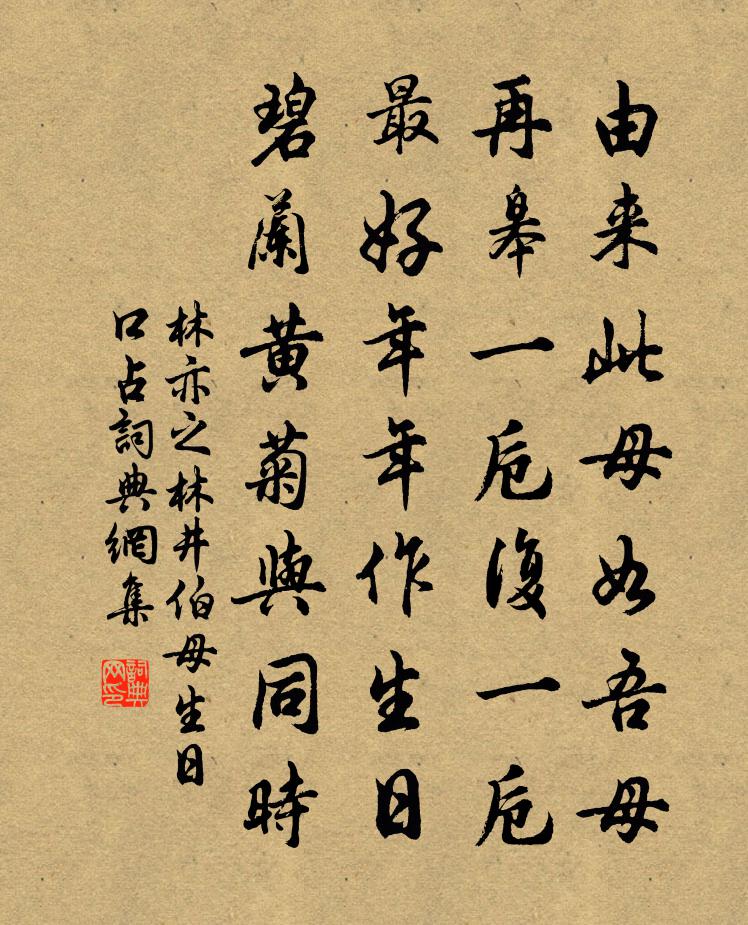 由来此母如吾母
再举一卮復一卮
最好年年作生日
碧蘭黄菊與同時
林亦之林井伯母生日
口占詞典網集
詞典网印